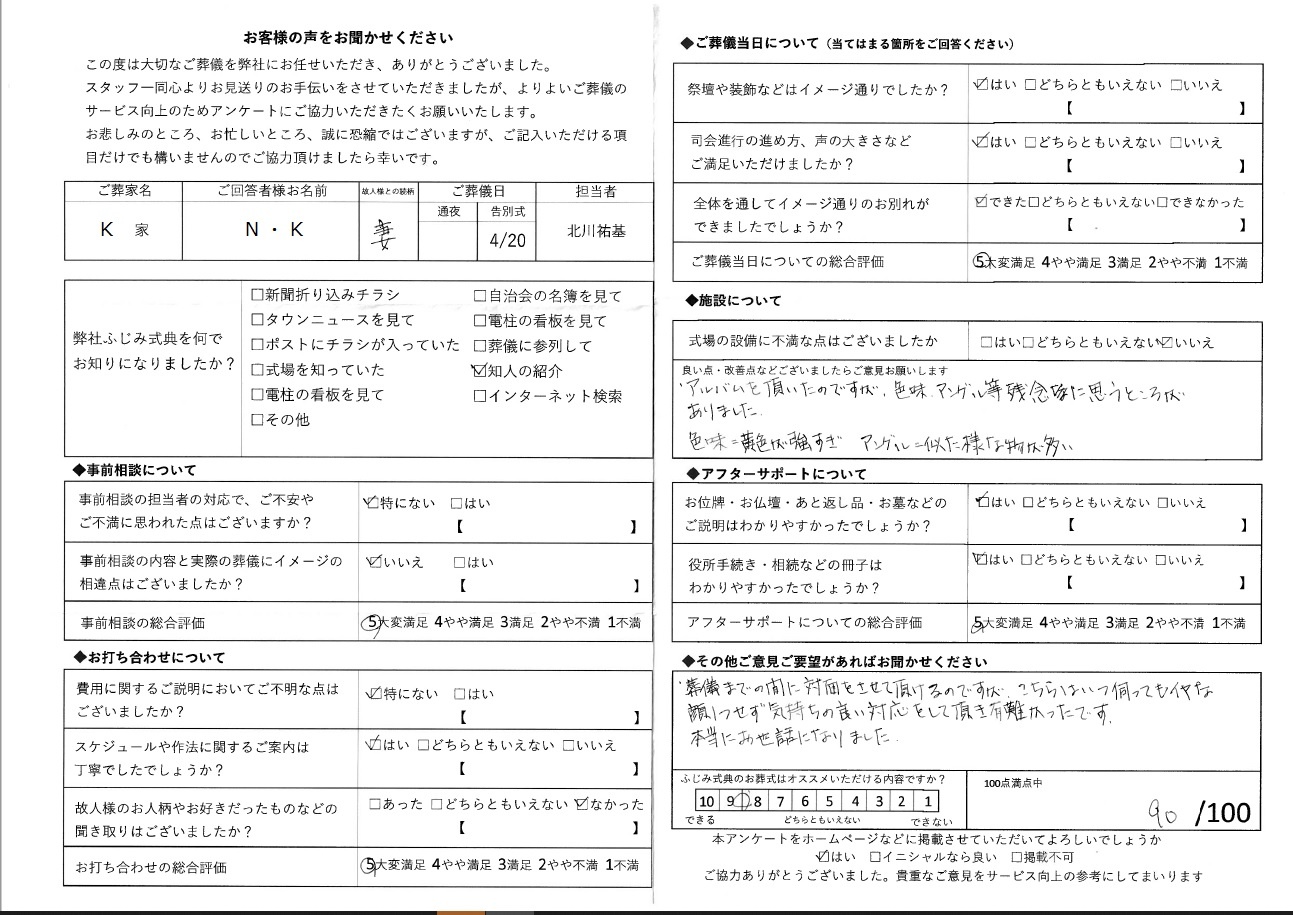 お客様の声をお聞かせください
この度は大切なご葬儀を弊社にお任せいただき、ありがとうございました。
スタッフ一同心よりお見送りのお手伝いをさせていただきましたが、よりよいご葬儀の
サービス向上のためアンケートにご協力いただきたくお願いいたします。
お悲しみのところ、お忙しいところ、誠に恐縮ではございますが、ご記入いただける項
目だけでも構いませんのでご協力頂けましたら幸いです。
ご葬家名 ご回答者様お名前 故人様との続柄 ご葬儀日 担当者
通夜 告別式
K 家 N・K 妻 4/20 北川祐基
弊社ふじみ式典を何で
お知りになりましたか？
□新聞折り込みチラシ □自治会の名簿を見て
□タウンニュースを見て □電柱の看板を見て
□ポストにチラシが入っていた □葬儀に参列して
□式場を知っていた ☑知人の紹介
□電柱の看板を見て □インターネット検索
□その他
◆事前相談について
事前相談の担当者の対応で、ご不安や
ご不満に思われた点はございますか？
☑特にない □はい
【 】
事前相談の内容と実際の葬儀にイメージの
相違点はございましたか？
☑いいえ □はい
【 】
事前相談の総合評価 5大変満足 4やや満足 3満足 2やや不満 1不満
◆お打ち合わせについて
費用に関するご説明においてご不明な点は
ございましたか？
☑特にない □はい
【 】
スケジュールや作法に関するご案内は
丁寧でしたでしょうか？
☑はい □どちらともいえない □いいえ
【 】
故人様のお人柄やお好きだったものなどの
聞き取りはございましたか？
□あった □どちらともいえない ☑なかった
【 】
お打ち合わせの総合評価 5大変満足 4やや満足 3満足 2やや不満 1不満
◆ご葬儀当日について（当てはまる箇所をご回答ください）
祭壇や装飾などはイメージ通りでしたか？
☑はい □どちらともいえない □いいえ
【 】
司会進行の進め方、声の大きさなど
ご満足いただけましたか？
☑はい □どちらともいえない □いいえ
【 】
全体を通してイメージ通りのお別れが
できましたでしょうか？
☑できた□どちらともいえない□できなかった
【 】
ご葬儀当日についての総合評価 5大変満足 4やや満足 3満足 2やや不満 1不満
◆施設について
式場の設備に不満な点はございましたか □はい□どちらともいえない☑いいえ
良い点・改善点などございましたらご意見お願いします
・アルバムを頂いたのですが、色味、アングル等残念な様に思うところが
ありました。
色味=黄色が強すぎ アングル=似た様な物が多い
◆アフターサポートについて
お位牌・お仏壇・あと返し品・お墓などの
ご説明はわかりやすかったでしょうか？
☑はい □どちらともいえない □いいえ
【 】
役所手続き・相続などの冊子は
わかりやすかったでしょうか？
☑はい □どちらともいえない □いいえ
【 】
アフターサポートについての総合評価 5大変満足 4やや満足 3満足 2やや不満 1不満
◆その他ご意見ご要望があればお聞かせください
・葬儀までの間に対面をさせて頂けるのですが、こちらはいつ伺ってもイヤな
顔1つせず気持ちの良い対応をして頂き有難かったです。
本当にお世話になりました。
ふじみ式典のお葬式はオススメいただける内容ですか？
10 9 8 7 6 5 4 3 2 1
できる どちらともいえない できない
100点満点中
90 /100
本アンケートをホームページなどに掲載させていただいてよろしいでしょうか
☑はい □イニシャルなら良い □掲載不可
ご協力ありがとうございました。貴重なご意見をサービス向上の参考にしてまいります